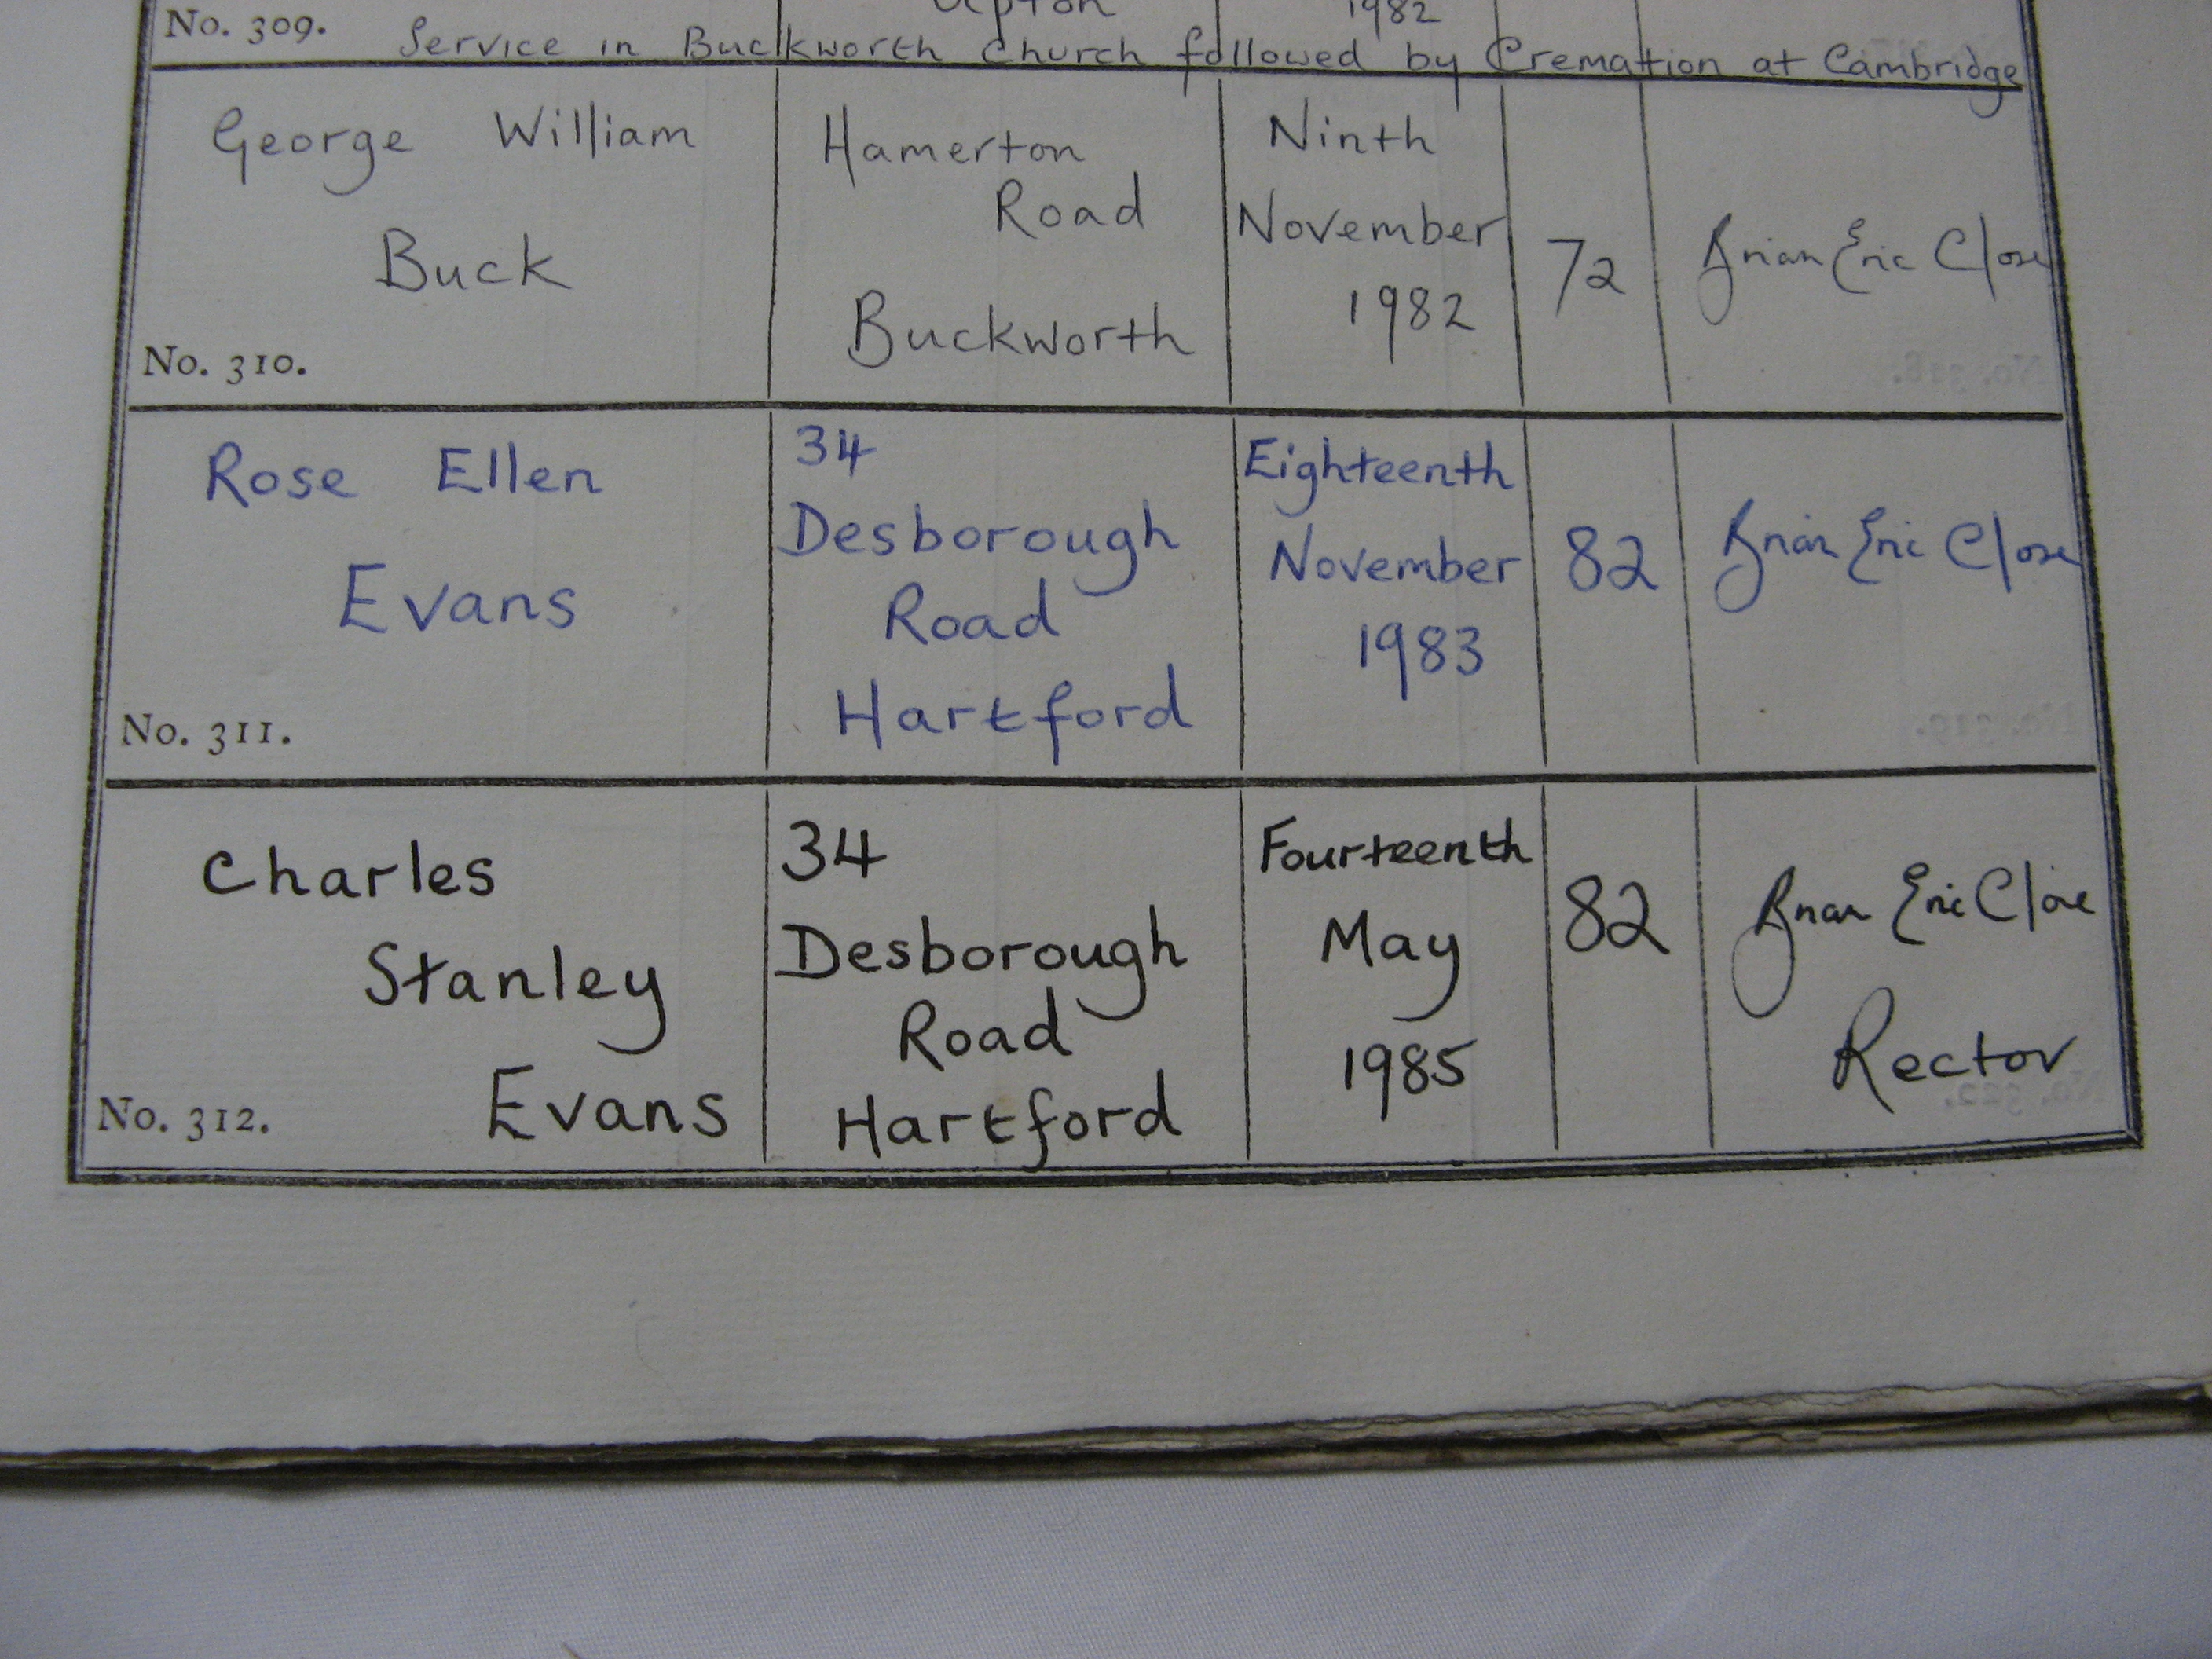 Upton
1982
No. 309.
Service in Buckworth Church followed by Cremation at Cambridge
George William
Buck
No. 310.
Hamerton
Road
Buckworth
Ninth
November
1982
72
Brian Eric Close
Rose Ellen
Evans
No. 311.
34
Desborough
Road
Hartford
Eighteenth
November
1983
82
Brian Eric Close
Charles
Stanley
Evans
No. 312.
34
Desborough
Road
Hartford
Fourteenth
May
1985
82
Brian Eric Close
Rector